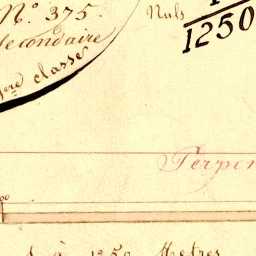 N.º 375.
secondaire
1ere classe
Nals
1250
Perpen
1 à 1250 Metres